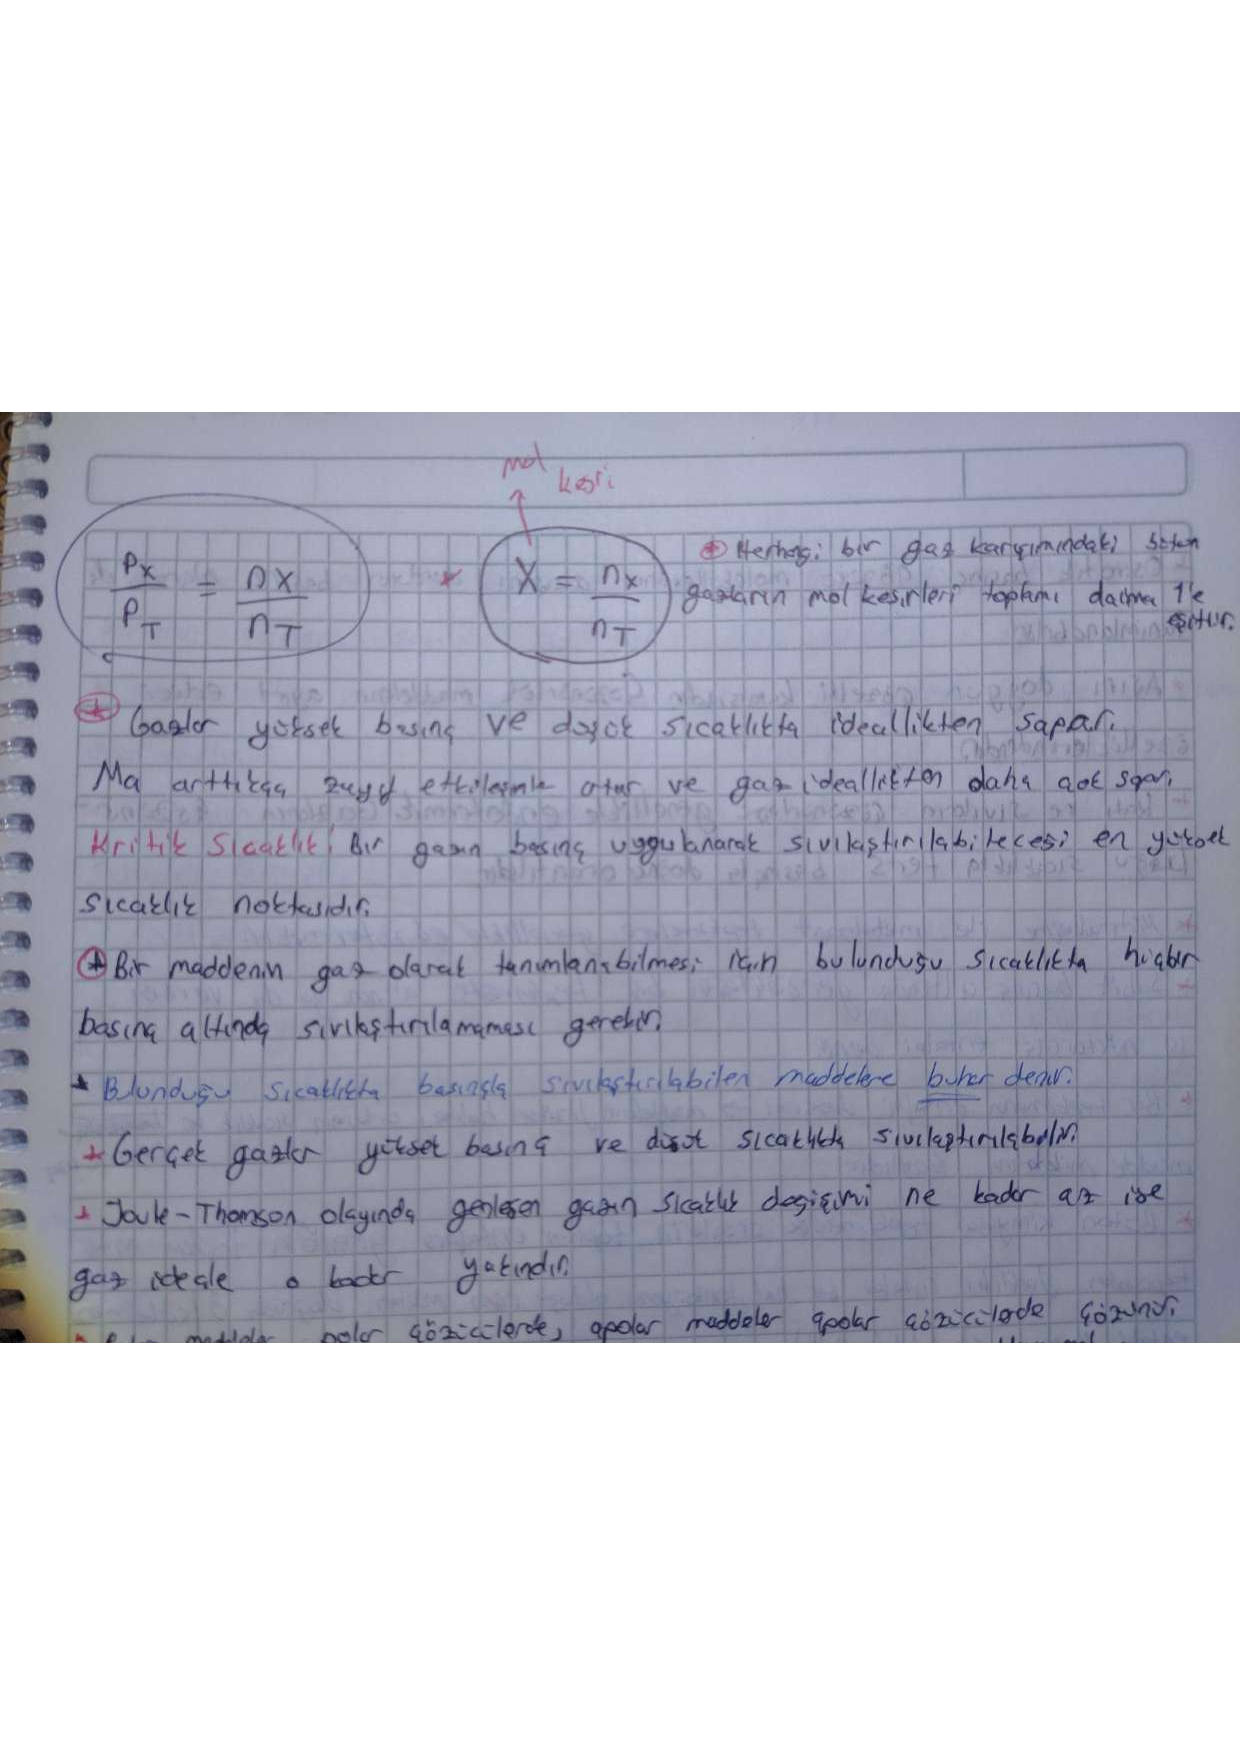 mol kesri
Px / PT = nx / nT
* X = nx / nT
* Herhangi bir gaz karışımındaki bütün
gazların mol kesirleri toplamı daima 1'e
eşittir.
* Gazlar yüksek basınç ve düşük sıcaklıkta ideallikten sapar.
Ma arttıkça zayıf etkileşimle artar ve gaz ideallikten daha çok sapar.
Kritik Sıcaklık: Bir gazın basınç uygulanarak sıvılaştırılabileceği en yüksek
sıcaklık noktasıdır.
* Bir maddenin gaz olarak tanımlanabilmesi için bulunduğu sıcaklıkta hiçbir
basınç altında sıvılaştırılamaması gerekir.
* Bulunduğu sıcaklıkta basınçla sıvılaştırılabilen maddelere buhar denir.
* Gerçek gazlar yüksek basınç ve düşük sıcaklıkta sıvılaştırılabilir.
* Joule-Thomson olayında genleşen gazın sıcaklık değişimi ne kadar az ise
gaz ideale o kadar yakındır.
maddeler polar çözücülerde, apolar maddeler apolar çözücülerde çözünür.